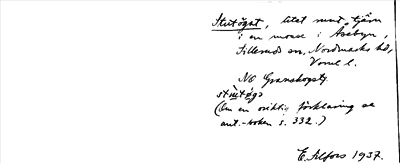 Stutögat, litet runt tjärn
i en mosse i Åsebyn,
Sillerud sn, Nordmarks hd,
Värml l.
NO Granskogstj
(Om en oriktig förklaring se
ant.-boken s. 332.)
E. Alfors 1937.